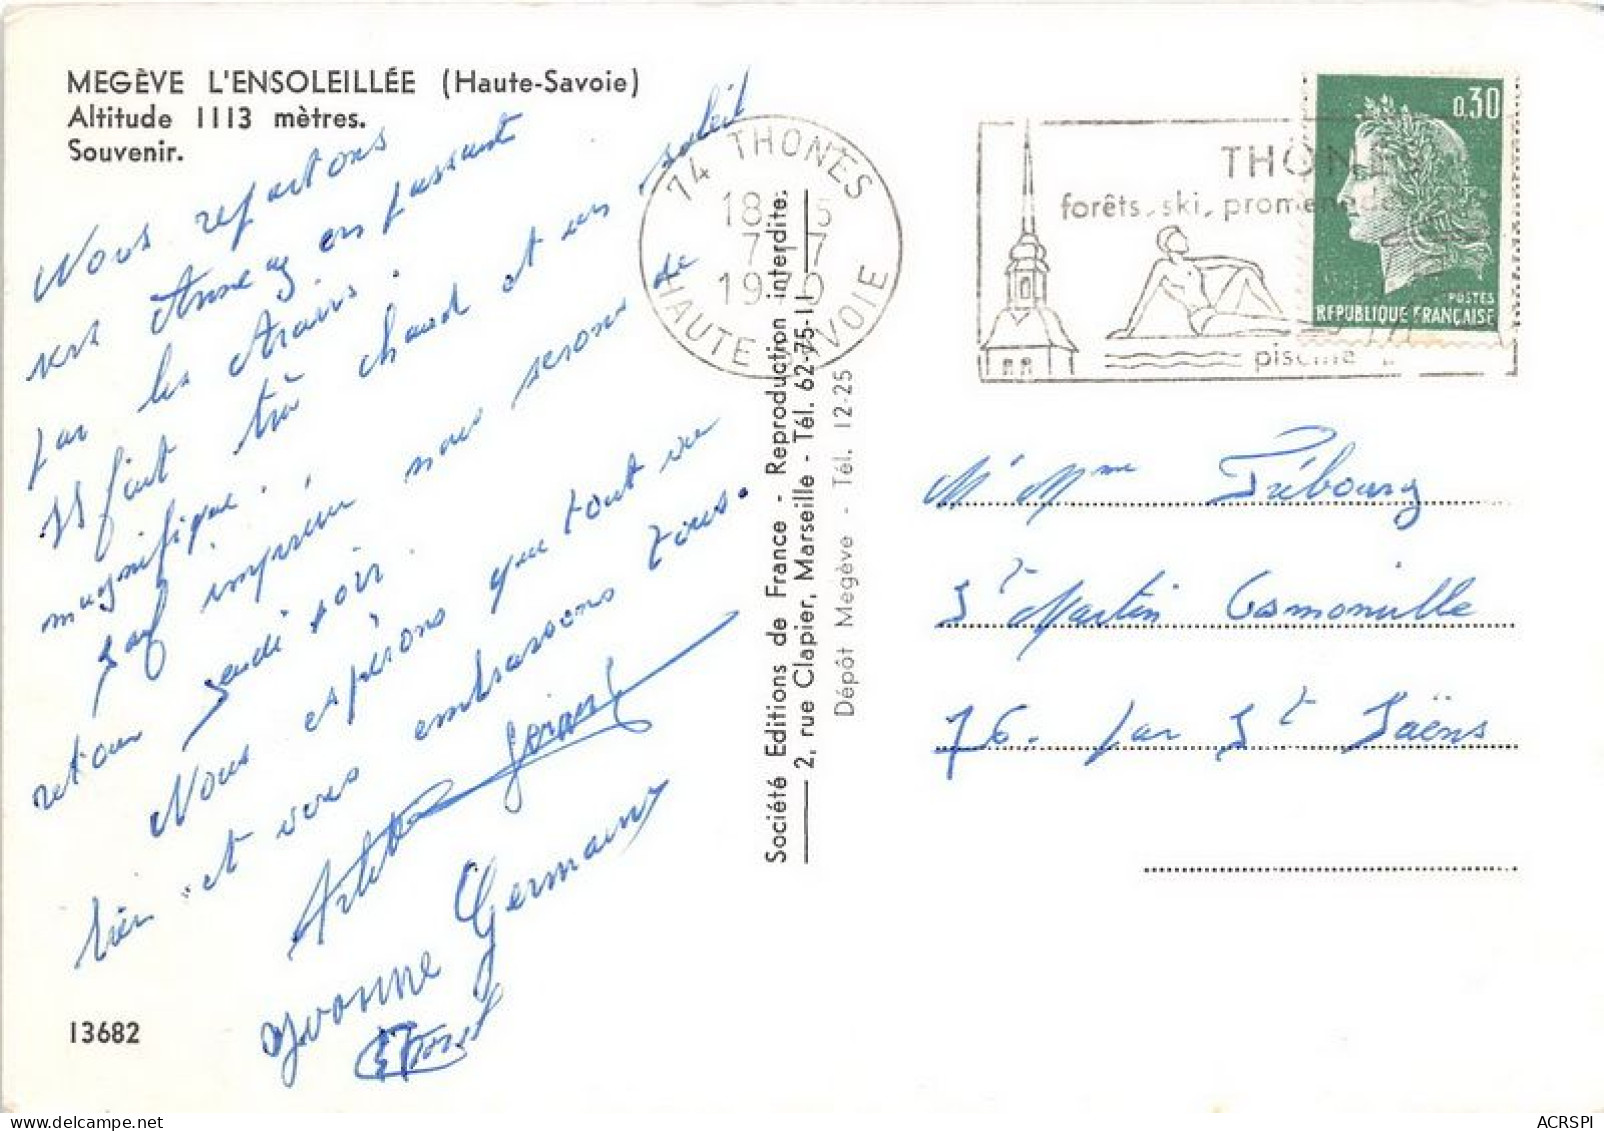 MEGÈVE L'ENSOLEILLÉE (Haute-Savoie)
Altitude 1113 mètres.
Souvenir.
Nous repartons
vers Annecy en passant
par les Aravis.
Il fait très chaud et un soleil
magnifique.
Sauf imprévu nous serons de
retour jeudi soir.
Nous espérons que tout va
bien et vous embrassons tous.
Yvonne Germain
13682
Société Editions de France - Reproduction interdite.
2, rue Clapier, Marseille - Tél. 62-75-11
Dépôt Megève - Tél. 12-25
74 THONES
18 5
7-7
1970
HAUTE SAVOIE
THÔNE
forêts, ski, promenades
piscine
0,30
POSTES
REPUBLIQUE FRANÇAISE
Mr Mme Prébourg
St Martin Osmonville
76. par St Saëns
ACRSPI